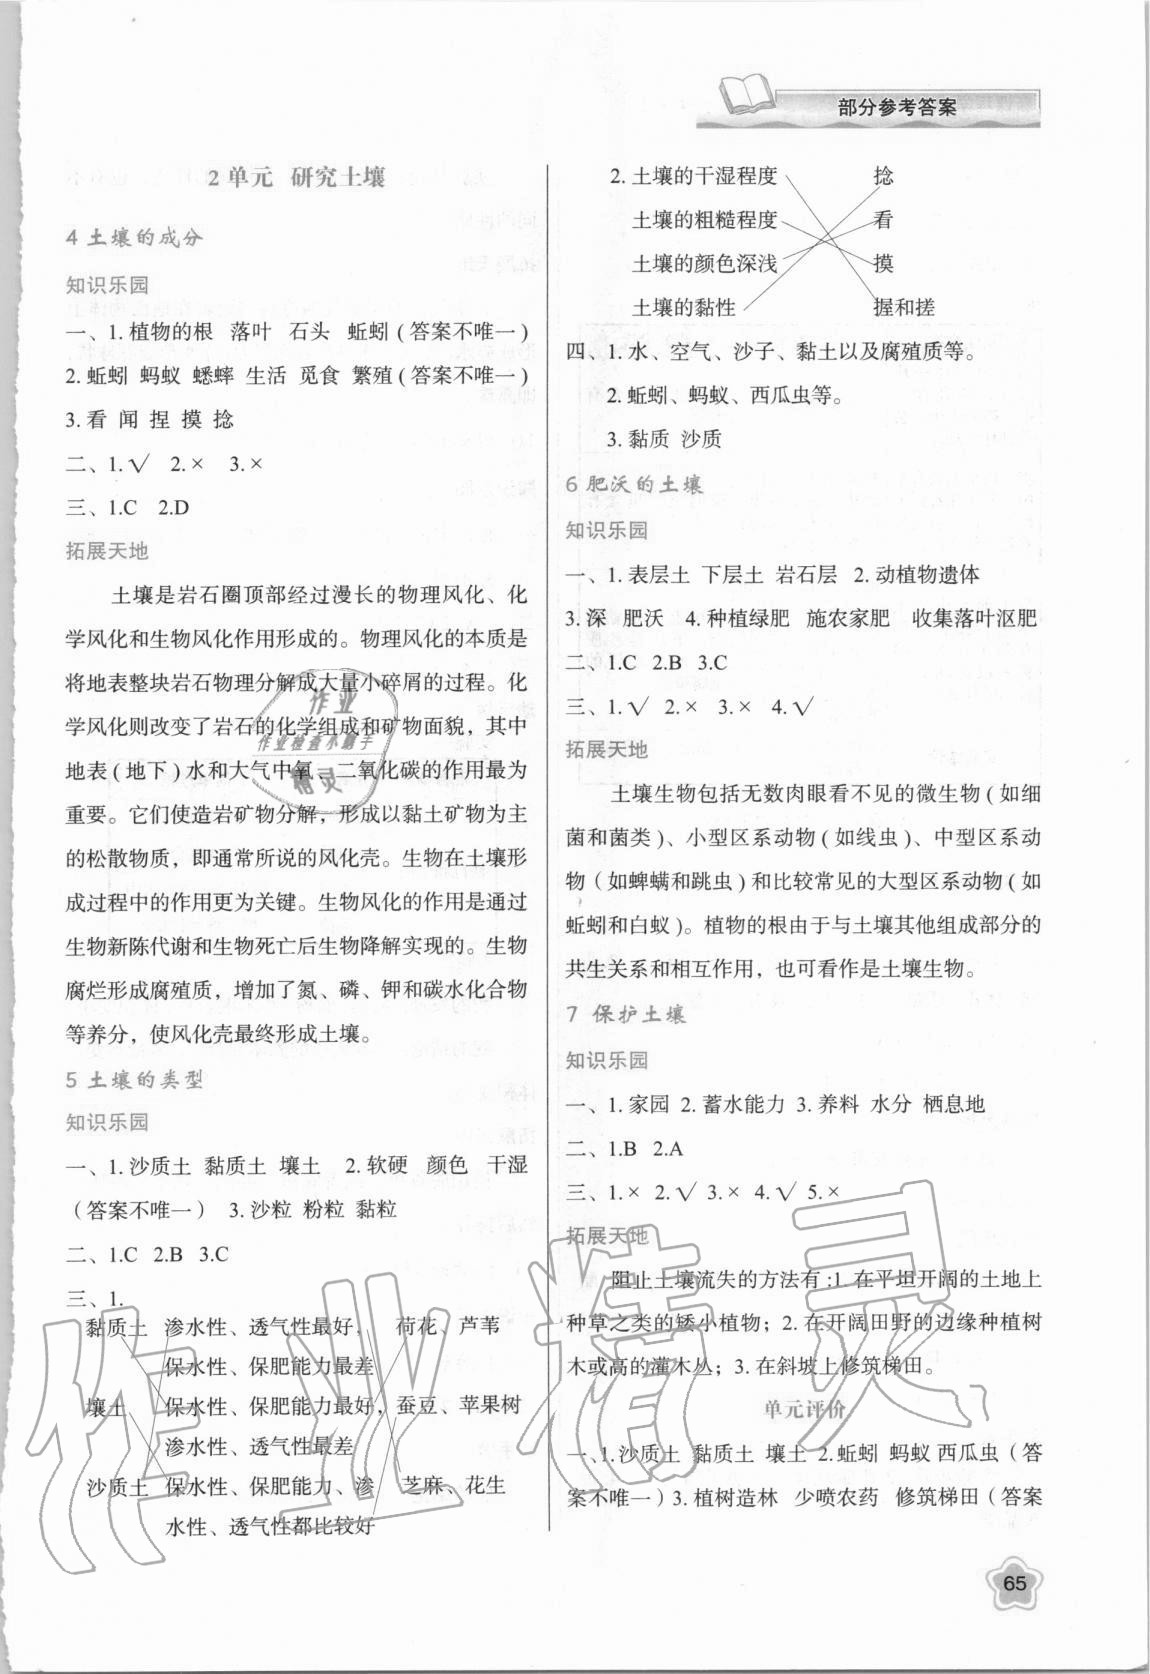 部分参考答案
2 单元 研究土壤
4 土壤的成分
知识乐园
一、1. 植物的根 落叶 石头 蚯蚓 ( 答案不唯一 )
2. 蚯蚓 蚂蚁 蟋蟀 生活 觅食 繁殖 ( 答案不唯一 )
3. 看 闻 捏 摸 捻
二、1.√ 2.× 3.×
三、1.C 2.D
拓展天地
土壤是岩石圈顶部经过漫长的物理风化、化
学风化和生物风化作用形成的。物理风化的本质是
将地表整块岩石物理分解成大量小碎屑的过程。化
学风化则改变了岩石的化学组成和矿物面貌，其中
地表 ( 地下 ) 水和大气中氧、二氧化碳的作用最为
重要。它们使造岩矿物分解，形成以黏土矿物为主
的松散物质，即通常所说的风化壳。生物在土壤形
成过程中的作用更为关键。生物风化的作用是通过
生物新陈代谢和生物死亡后生物降解实现的。生物
腐烂形成腐殖质，增加了氮、磷、钾和碳水化合物
等养分，使风化壳最终形成土壤。
5 土壤的类型
知识乐园
一、1. 沙质土 黏质土 壤土 2. 软硬 颜色 干湿
（答案不唯一） 3. 沙粒 粉粒 黏粒
二、1.C 2.B 3.C
三、1.
黏质土 渗水性、透气性最好， 荷花、芦苇
保水性、保肥能力最差
壤土 保水性、保肥能力最好， 蚕豆、苹果树
渗水性、透气性最差
沙质土 保水性、保肥能力、渗 芝麻、花生
水性、透气性都比较好
2. 土壤的干湿程度 捻
土壤的粗糙程度 看
土壤的颜色深浅 摸
土壤的黏性 握和搓
四、1. 水、空气、沙子、黏土以及腐殖质等。
2. 蚯蚓、蚂蚁、西瓜虫等。
3. 黏质 沙质
6 肥沃的土壤
知识乐园
一、1. 表层土 下层土 岩石层 2. 动植物遗体
3. 深 肥沃 4. 种植绿肥 施农家肥 收集落叶沤肥
二、1.C 2.B 3.C
三、1.√ 2.× 3.× 4.√
拓展天地
土壤生物包括无数肉眼看不见的微生物 ( 如细
菌和菌类 )、小型区系动物 ( 如线虫 )、中型区系动
物（如蜱螨和跳虫 ) 和比较常见的大型区系动物 ( 如
蚯蚓和白蚁 )。植物的根由于与土壤其他组成部分的
共生关系和相互作用，也可看作是土壤生物。
7 保护土壤
知识乐园
一、1. 家园 2. 蓄水能力 3. 养料 水分 栖息地
二、1.B 2.A
三、1.× 2.√ 3.× 4.√ 5.×
拓展天地
阻止土壤流失的方法有 :1. 在平坦开阔的土地上
种草之类的矮小植物；2. 在开阔田野的边缘种植树
木或高的灌木丛；3. 在斜坡上修筑梯田。
单元评价
一、1.沙质土 黏质土 壤土 2. 蚯蚓 蚂蚁 西瓜虫（答
案不唯一）3. 植树造林 少喷农药 修筑梯田（答案
65
作业
作业检查小助手
精灵
作业精灵